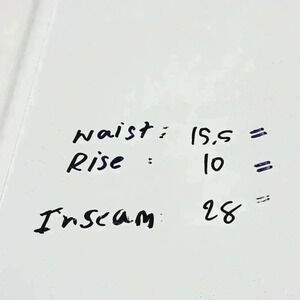 Waist: 15.5 =
Rise : 10 =
Inseam: 28 =